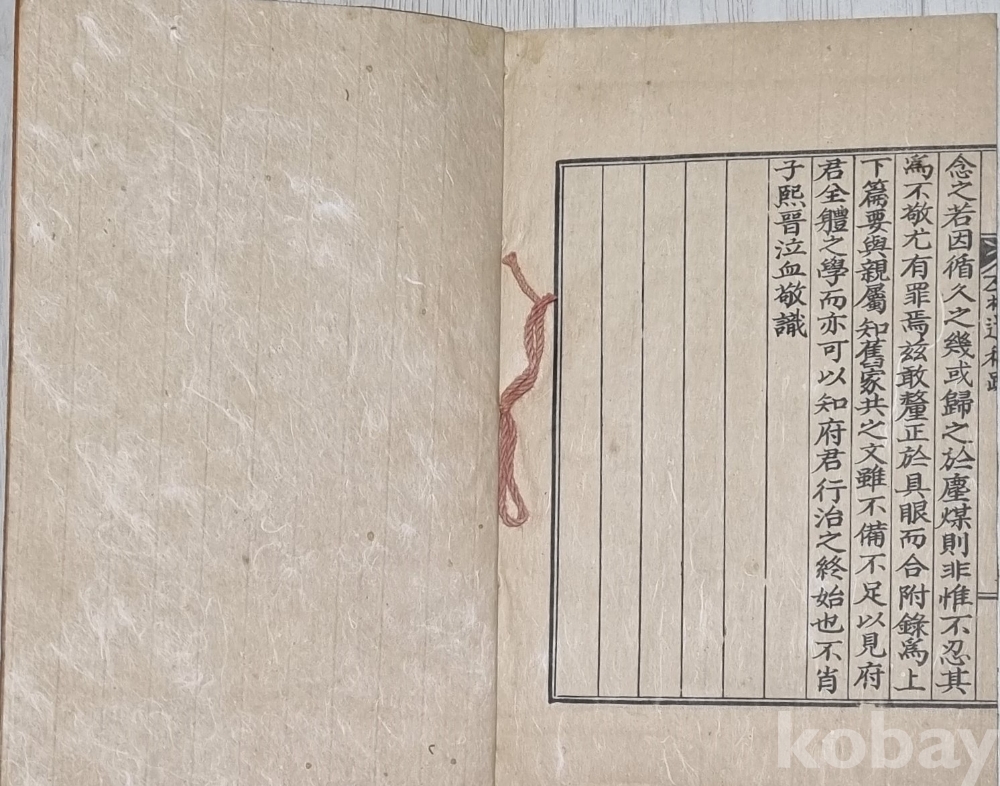 念之若因循久之幾或歸之於塵煤則非惟不忍其
爲不敬尤有罪焉玆敢釐正於具眼而合附錄爲上
下篇要與親屬知舊家共之文雖不備不足以見府
君全體之學而亦可以知府君行治之終始也不肖
子熙晉泣血敬識
kobay